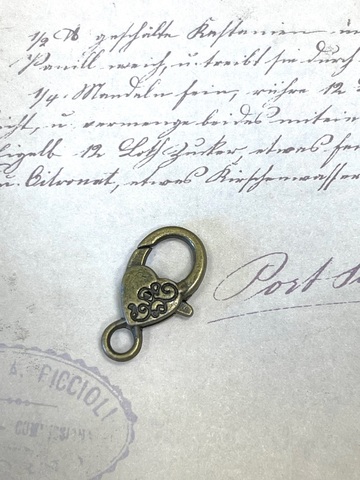 1/2 ℔ geschälte Kastanien in
Vanill weich, u. treibt sie durch
1/4. Mandeln fein, rühre 12
icht, u. vermenge beides mitein
Eigelb 12 Loth Zucker, etwas fei
u. Citronat, etwas Kirschenwasser
Port
FICCIOLI